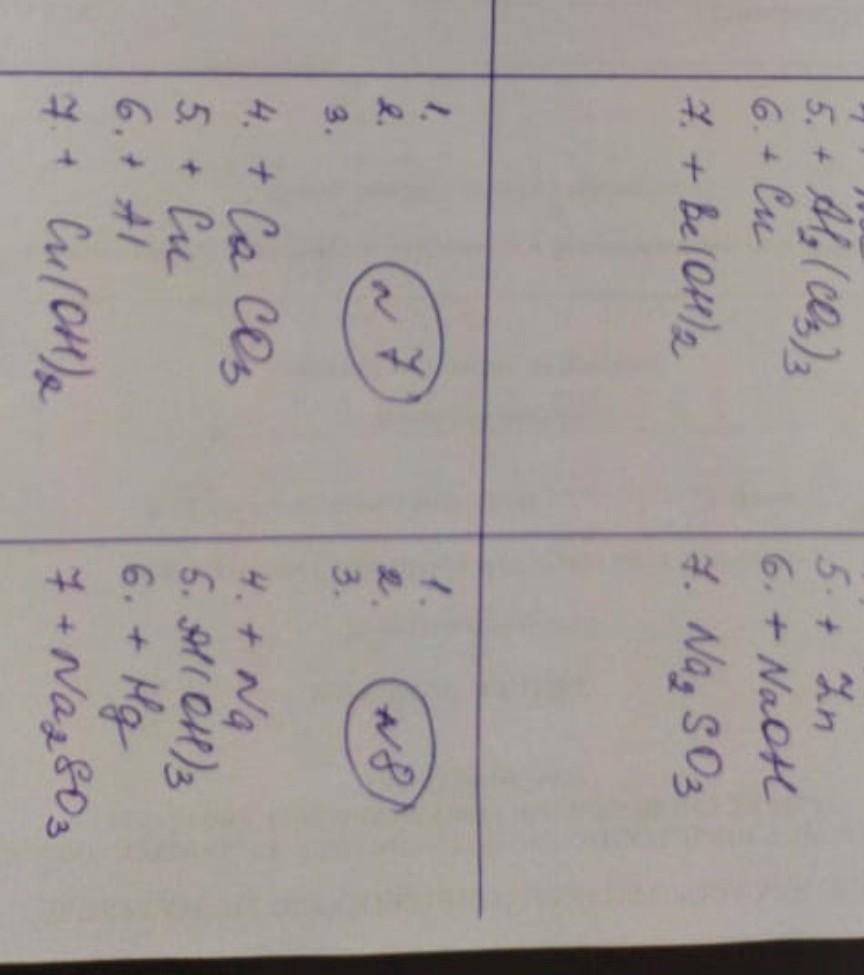 5. + Al₂(CO₃)₃
6. + Cu
7. + Be(OH)₂
5. + Zn
6. + NaOH
7. Na₂SO₃
N 7
1.
2.
3.
4. + CaCO₃
5. + Cu
6. + Al
7. + Cu(OH)₂
N8
1.
2.
3.
4. + Na
5. Al(OH)₃
6. + Hg
7 + Na₂SO₃